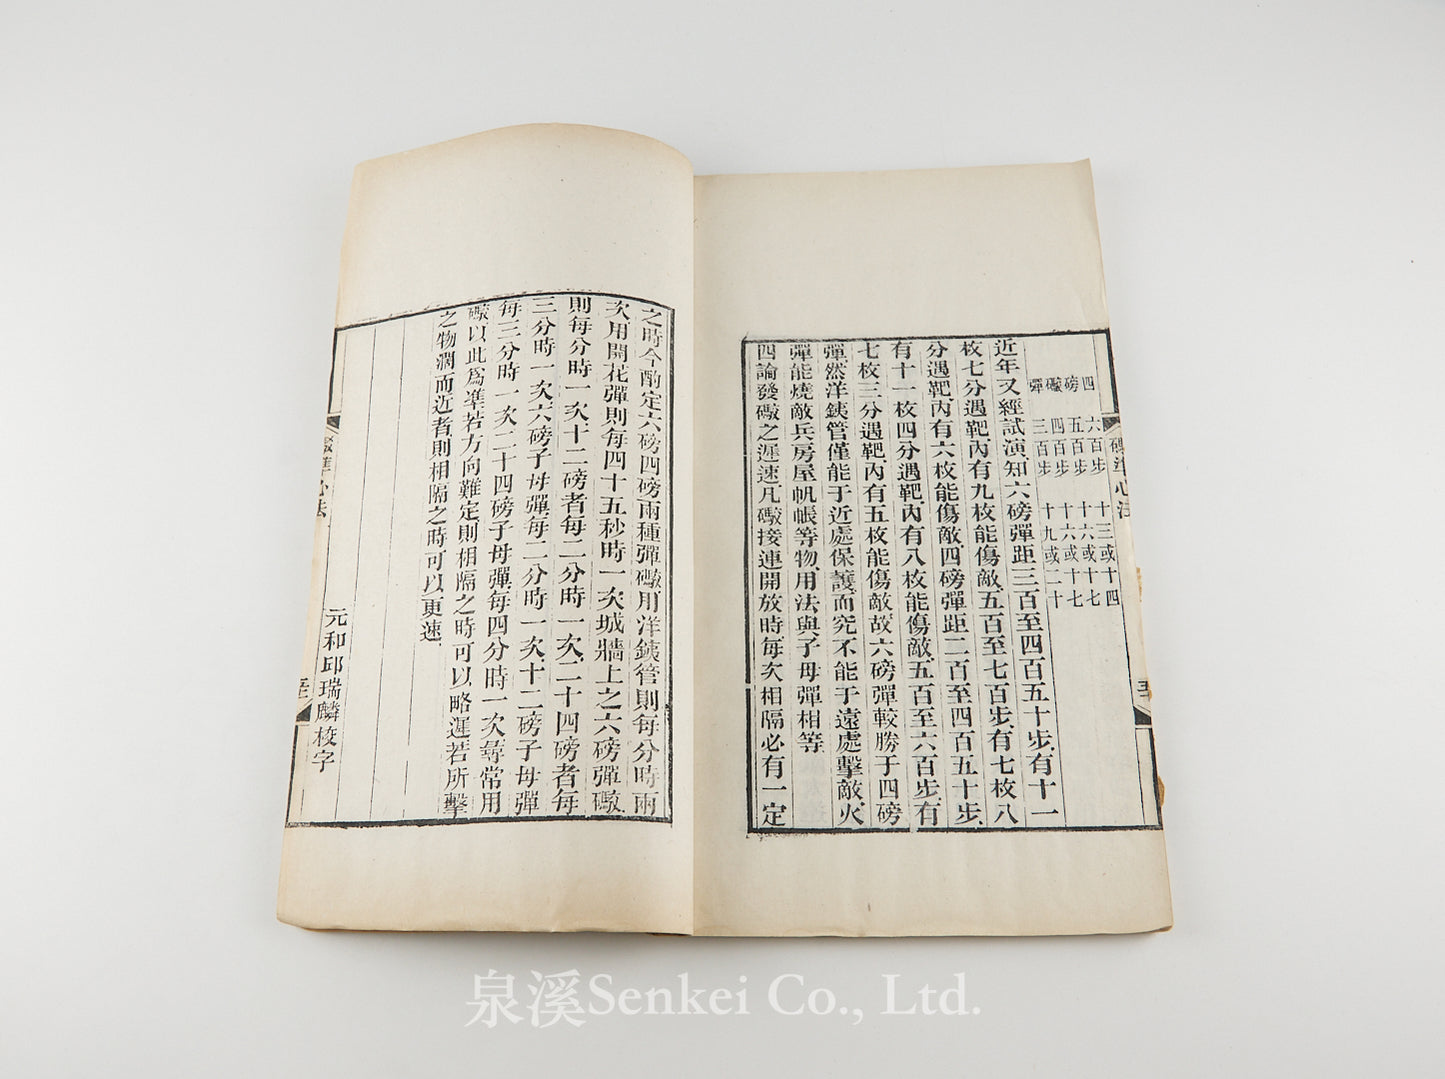 礮準心法
四磅礮彈
六百步 十三或十四
五百步 十六或十七
四百步 十六或十七
三百步 十九或二十
近年又經試演、知六磅彈距三百至四百五十步、有十一
枚七分遇靶、內有九枚能傷敵、五百至七百步、有七枚八
分遇靶、內有六枚能傷敵、四磅彈距二百至四百五十步、
有十一枚四分遇靶、內有八枚能傷敵、五百至六百步、有
七枚三分遇靶、內有五枚能傷敵、故六磅彈較勝于四磅
彈、然洋銕管僅能于近處保護、而究不能于遠處擊敵、火
彈能燒敵兵房屋帆帳等物、用法與子母彈相等
四論發礮之遲速、凡礮接連開放時、每次相隔必有一定
之時、今酌定六磅四磅兩種彈礮、用洋銕管、則每分時兩
次、用開花彈、則每四十五秒時一次、城牆上之六磅彈礮、
則每分時一次、十二磅者每二分時一次、二十四磅者每
三分時一次、六磅子母彈、每二分時一次、十二磅子母彈
每三分時一次、二十四磅子母彈、每四分時一次、尋常用
礮以此爲準、若方向難定、則相隔之時可以略遲、若所擊
之物濶而近者、則相隔之時可以更速、
元和邱瑞麟校字
礮準心法
泉溪Senkei Co., Ltd.